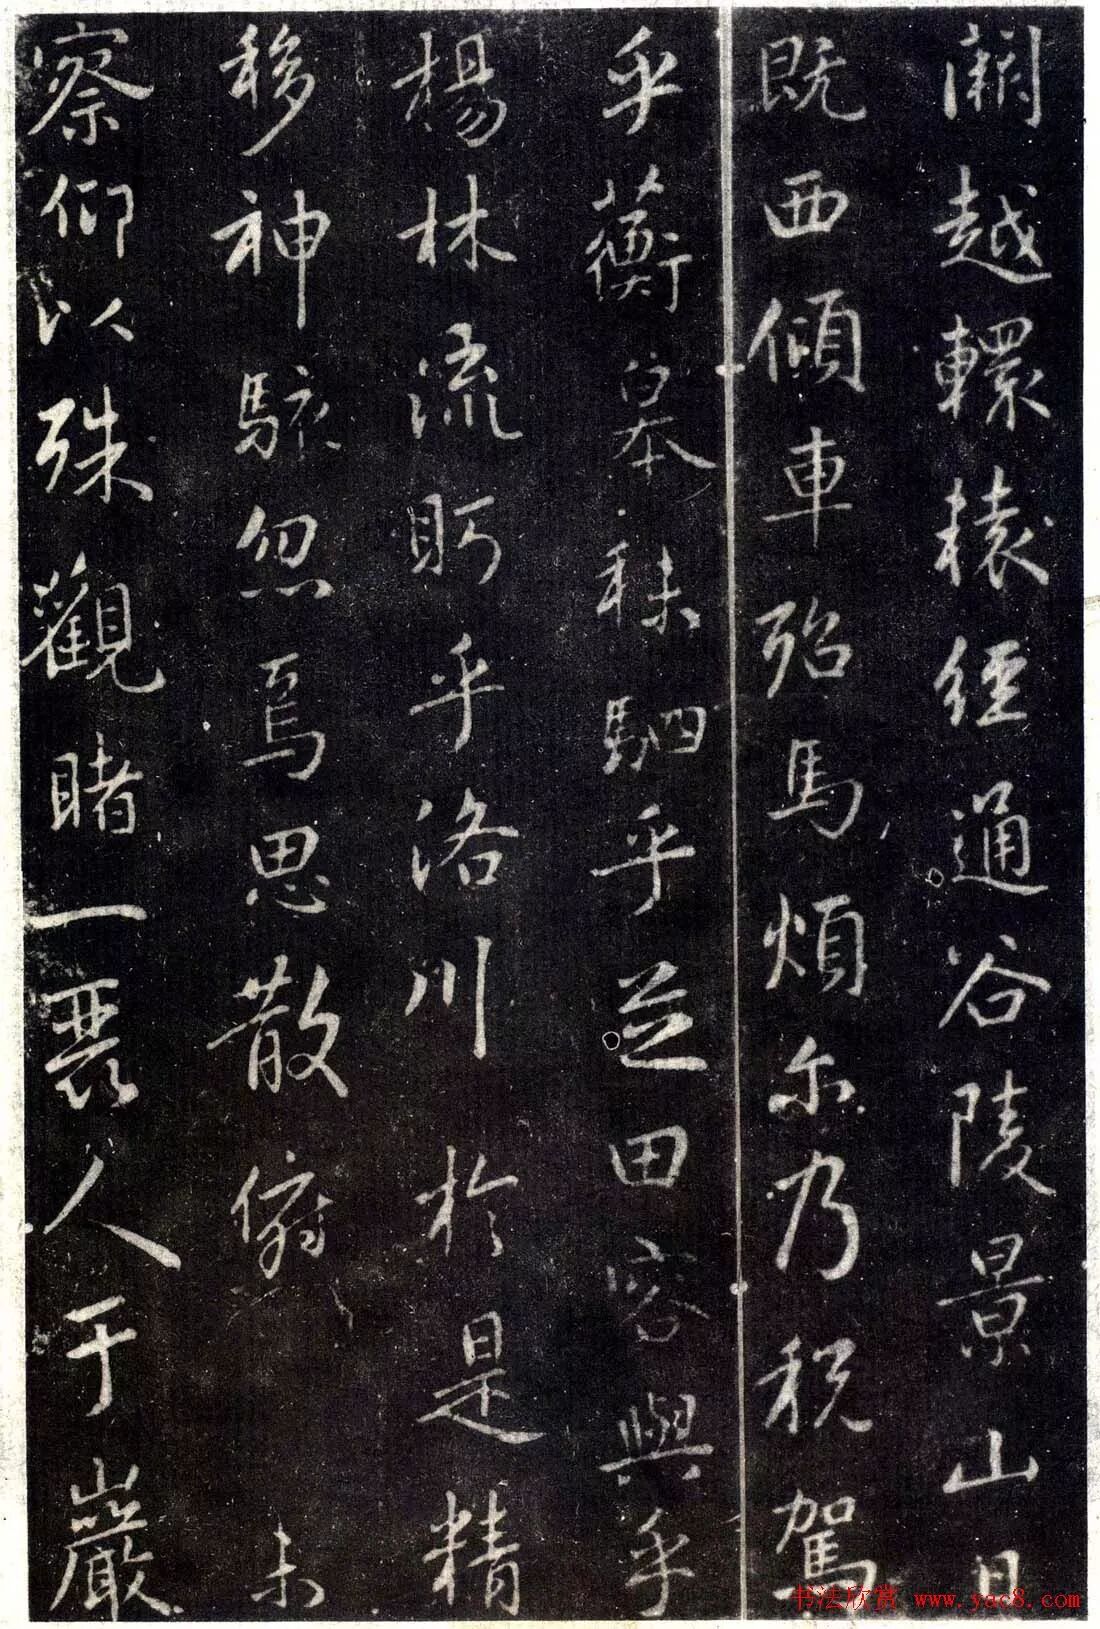 闕越轘轅經通谷陵景山日
既西傾車殆馬煩尔乃税駕
乎蘅皋秣駟乎芝田容與乎
楊林流眄乎洛川於是精
移神駭忽焉思散俯未
察仰以殊觀睹一麗人于巖
书法欣赏 www.yac8.com